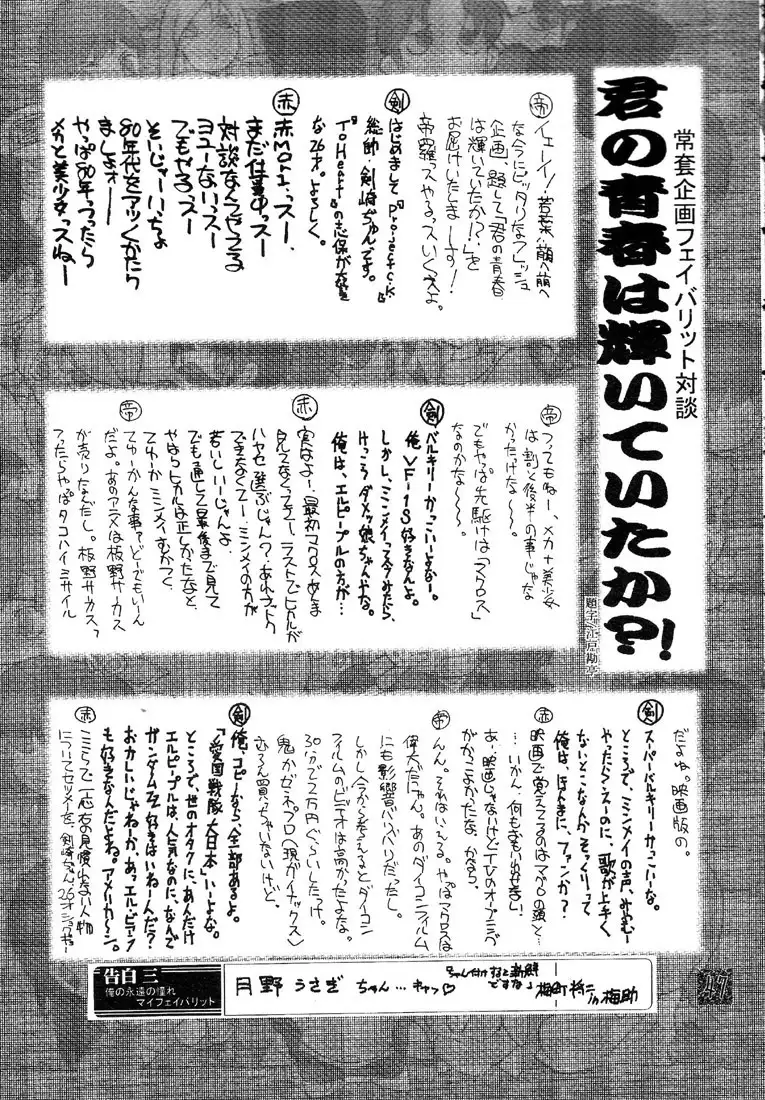 常套企画フェイバリット対談
君の青春は輝いていたか?!
題字/江戸勘亭
帝
イェーイ!若葉萌へ萌へ
な今にピッタリなフレッシュ
企画、題して「君の青春
は輝いていたか!?」を
お届けいたしまーす!
帝羅っスやるっスいくでえよ。
剣
はじめまして『ProjectCK』
総帥・剣崎ぢゅんです。
『ToHeart』の志保が大好き
な26才。よろしく。
赤
赤MoRiっスー、
まだ仕事中っスー
対談なんてやってる
ヨユーないっスー
でもやるっスー
そいじゃーいっちょ
80年代をアツくかたり
ましょオー
やっぱ80年っつったら
メカと美少女っスねー
帝
つってもねー、メカ+美少女
は割と後半の事じゃな
かったけな〜。
でもやっぱ先駆けは「マクロス」
なのかな〜〜〜。
剣
バルキリーかっこいーよなー。
俺VF-1S好きなんよ。
しかし、ミンメイって今みたら、
けっこうダメッ娘ちゃんやな。
俺は、エルピープルの方が…
赤
実はよー、最初マクロスあま
見てなくってェー、ラストでヒカルが
ハヤセ選ぶじゃん?あれナットク
できなくてー、ミンメイの方が
若いしいーじゃんよ
でも通して最後まで見て
やはりヒカルは正しかったなと、
てゆーかミンメイ、むかつく
帝
てゆーかんな事ァどーでもいーん
だよ。あのアニメは板野サーカス
が売りなんだし。板野サーカス、
つったらやっぱタコハイミサイル
だよね。映画版の。
剣
スーパーバルキリーかっこいーな。
ところで、ミンメイの声、みやむー
やったらえーのに、歌が上手く
ないとこなんかそっくりって
俺は、ほんまに、ファンか?
赤
映画で覚えてるのはマクロスの頭と…
…いかん、何もおもい出せない!
あ、映画じゃないけどTVのオープニング
がかっこよかったな、かなり。
帝
んん。それはいえる。やっぱマクロスは
偉大だなん。あのダイコンフィルム
にも影響バリバリだったし。
しかし今から考えるとダイコン
フィルムのビデオは高かったよな。
30分で2万円ぐらいしたっけ。
鬼かゼネプロ(現ガイナックス)
むろん買っちゃいないけど。
剣
俺、コピーなら、全部あるよ。
「愛國戦隊大日本」いーよな。
ところで、世のオタクに、あんだけ
エルピープルは、人気なのに、なんで
ガンダムZZ好きはいねーんだ?
おかしいじゃねーか。あっ、エルビアンク
も好きなんだよね。アメリカ〜ン。
赤
ここらで一応お見慣れない人物
についてセツメーを、剣崎ぢゅん26才
告白 三
俺の永遠の憧れ
マイフェイバリット
月野うさぎちゃん…キャッ♡
ちゃん付けすると新鮮
ですな